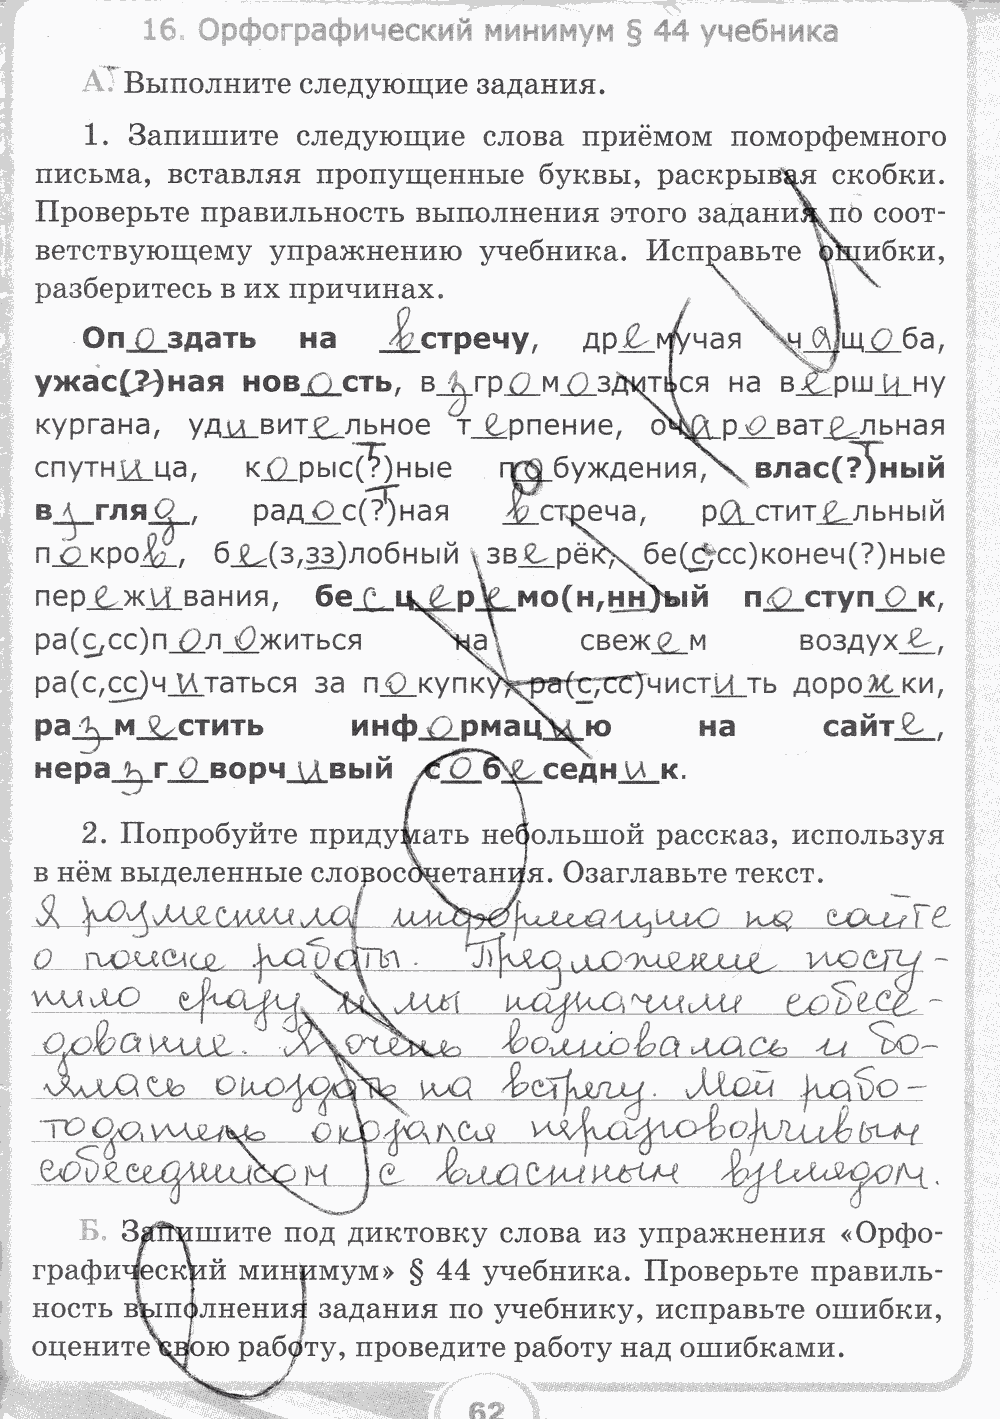 16. Орфографический минимум § 44 учебника
А. Выполните следующие задания.
1. Запишите следующие слова приёмом поморфемного
письма, вставляя пропущенные буквы, раскрывая скобки.
Проверьте правильность выполнения этого задания по соот-
ветствующему упражнению учебника. Исправьте ошибки,
разберитесь в их причинах.
Опоздать на встречу, дремучая чащоба,
ужас(?)ная новость, взгромоздиться на вершину
кургана, удивительное терпение, очаровательная
спутница, корыс(?)тные побуждения, влас(?)тный
взгляд, радос(?)тная встреча, растительный
покров, бе(з,зз)лобный зверёк, бе(с,сс)конеч(?)ные
переживания, бесцеремо(н,нн)ый поступок,
ра(с,сс)положиться на свежем воздухе,
ра(с,сс)читаться за покупку, ра(с,сс)чистить дорожки,
разместить информацию на сайте,
неразговорчивый собеседник.
2. Попробуйте придумать небольшой рассказ, используя
в нём выделенные словосочетания. Озаглавьте текст.
Я разместила информацию на сайте
о поиске работы. Предложение посту-
пило сразу и мы назначили собесе-
дование. Я очень волновалась и бо-
ялась опоздать на встречу. Мой рабо-
тодатель оказался неразговорчивым
собеседником с властным взглядом.
Б. Запишите под диктовку слова из упражнения «Орфо-
графический минимум» § 44 учебника. Проверьте правиль-
ность выполнения задания по учебнику, исправьте ошибки,
оцените свою работу, проведите работу над ошибками.
62